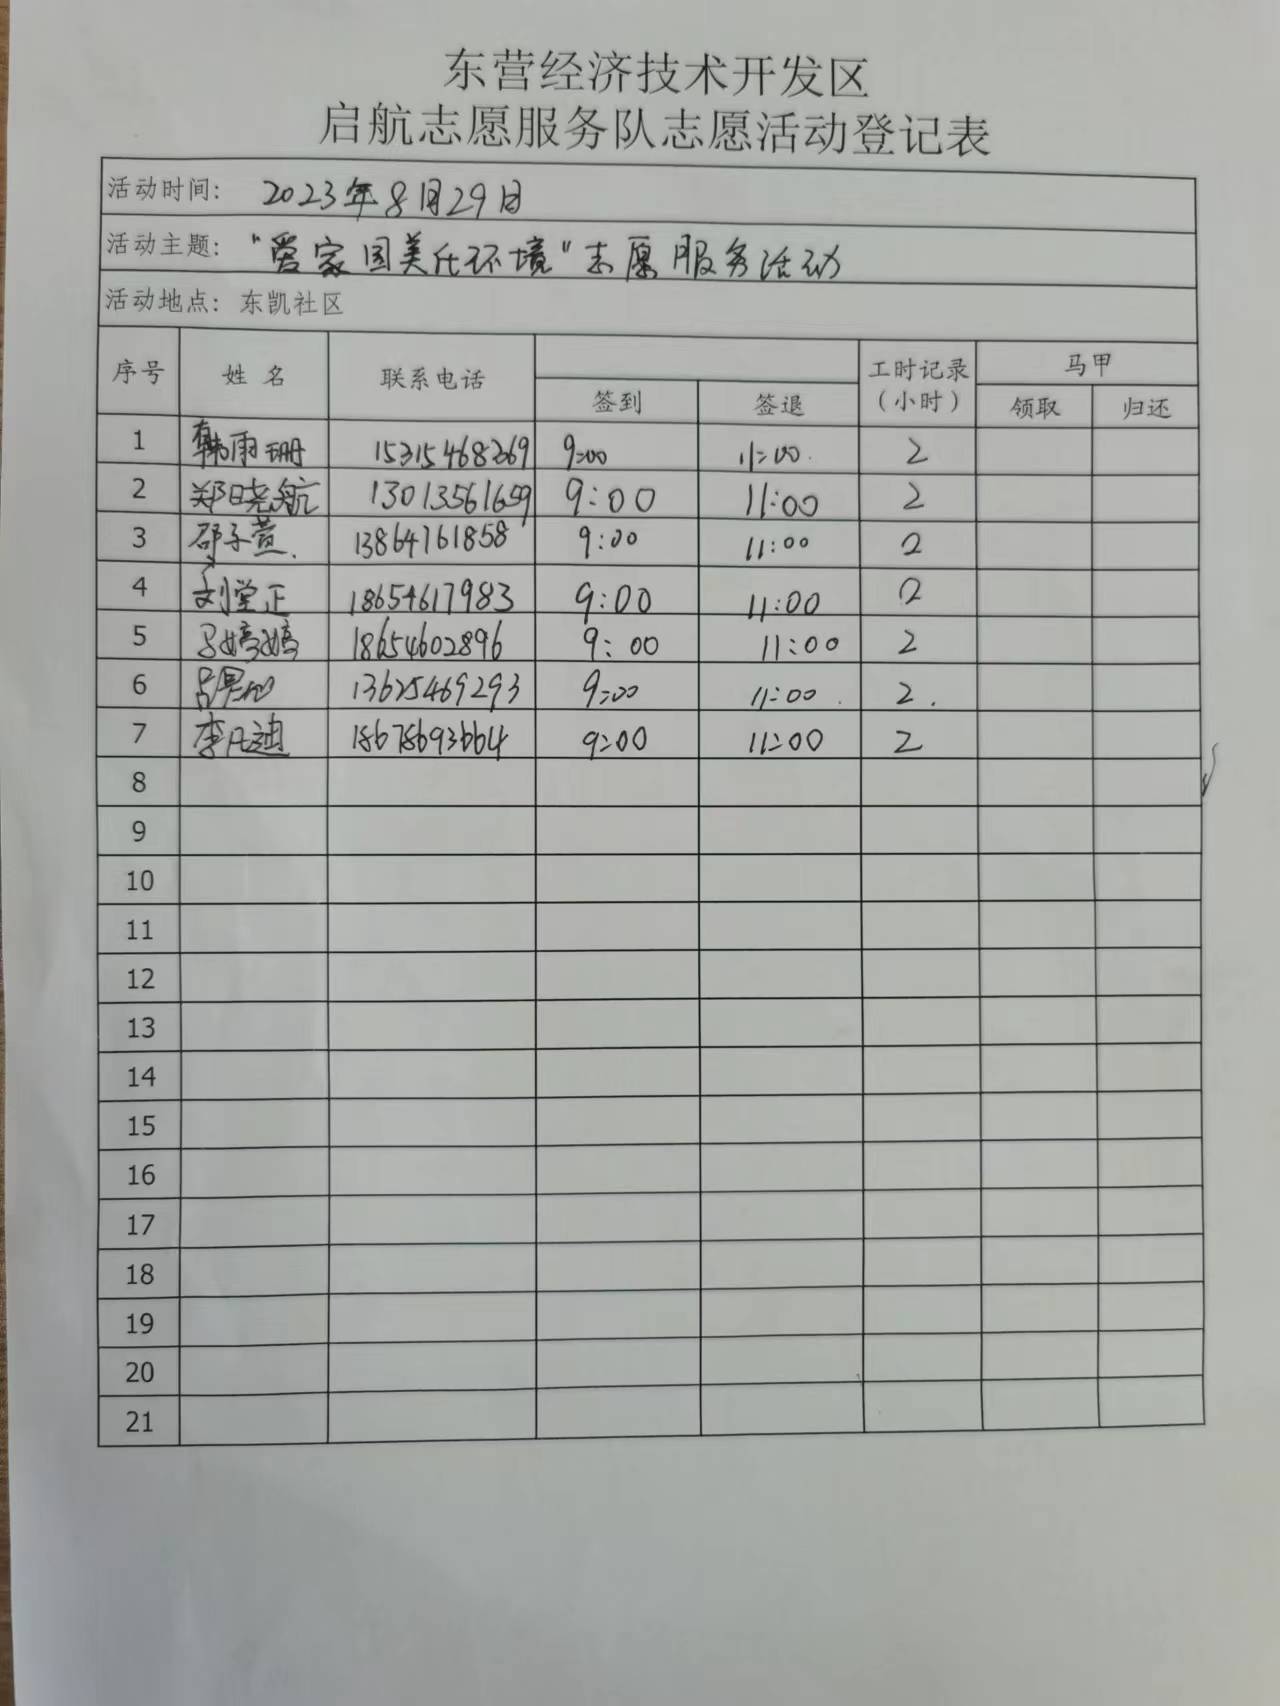 东营经济技术开发区
启航志愿服务队志愿活动登记表
活动时间: 2023年8月29日
活动主题: "爱家园美化环境"志愿服务活动
活动地点: 东凯社区
序号 姓名 联系电话 签到 签退 工时记录(小时) 马甲 领取 归还
1 韩雨珊 15315468369 9:00 11:00 2
2 郑晓航 13013561659 9:00 11:00 2
3 邵子萱 13864761858 9:00 11:00 2
4 刘堂正 18654617983 9:00 11:00 2
5 婷婷 18654602896 9:00 11:00 2
6 吕 13625469293 9:00 11:00 2
7 李凡迪 18678693664 9:00 11:00 2
8
9
10
11
12
13
14
15
16
17
18
19
20
21